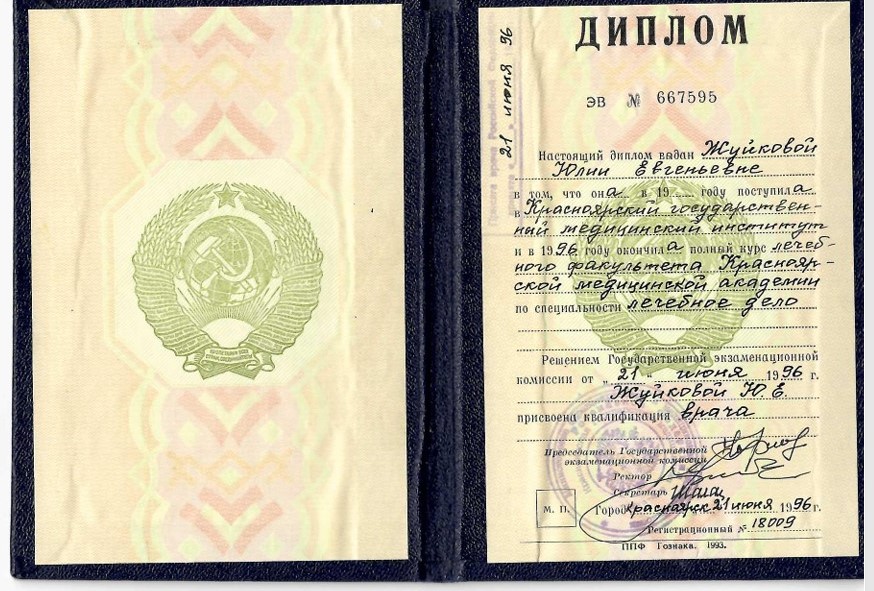 ДИПЛОМ
ЭВ № 667595
21 июня 96
Настоящий диплом выдан Жуйковой
Юлии Евгеньевне
в том, что она в 19 году поступила
в Красноярский государствен-
ный медицинский институт
и в 1996 году окончила полный курс лечеб-
ного факультета Краснояр-
ской медицинской академии
по специальности лечебное дело
Решением Государственной экзаменационной
комиссии от „21“ июня 1996 г.
Жуйковой Ю. Е.
присвоена квалификация врача
Председатель Государственной
экзаменационной комиссии
Ректор
Секретарь
М. П.
Город Красноярск 21 июня 1996 г.
Регистрационный № 18009
ППФ Гознака. 1993.